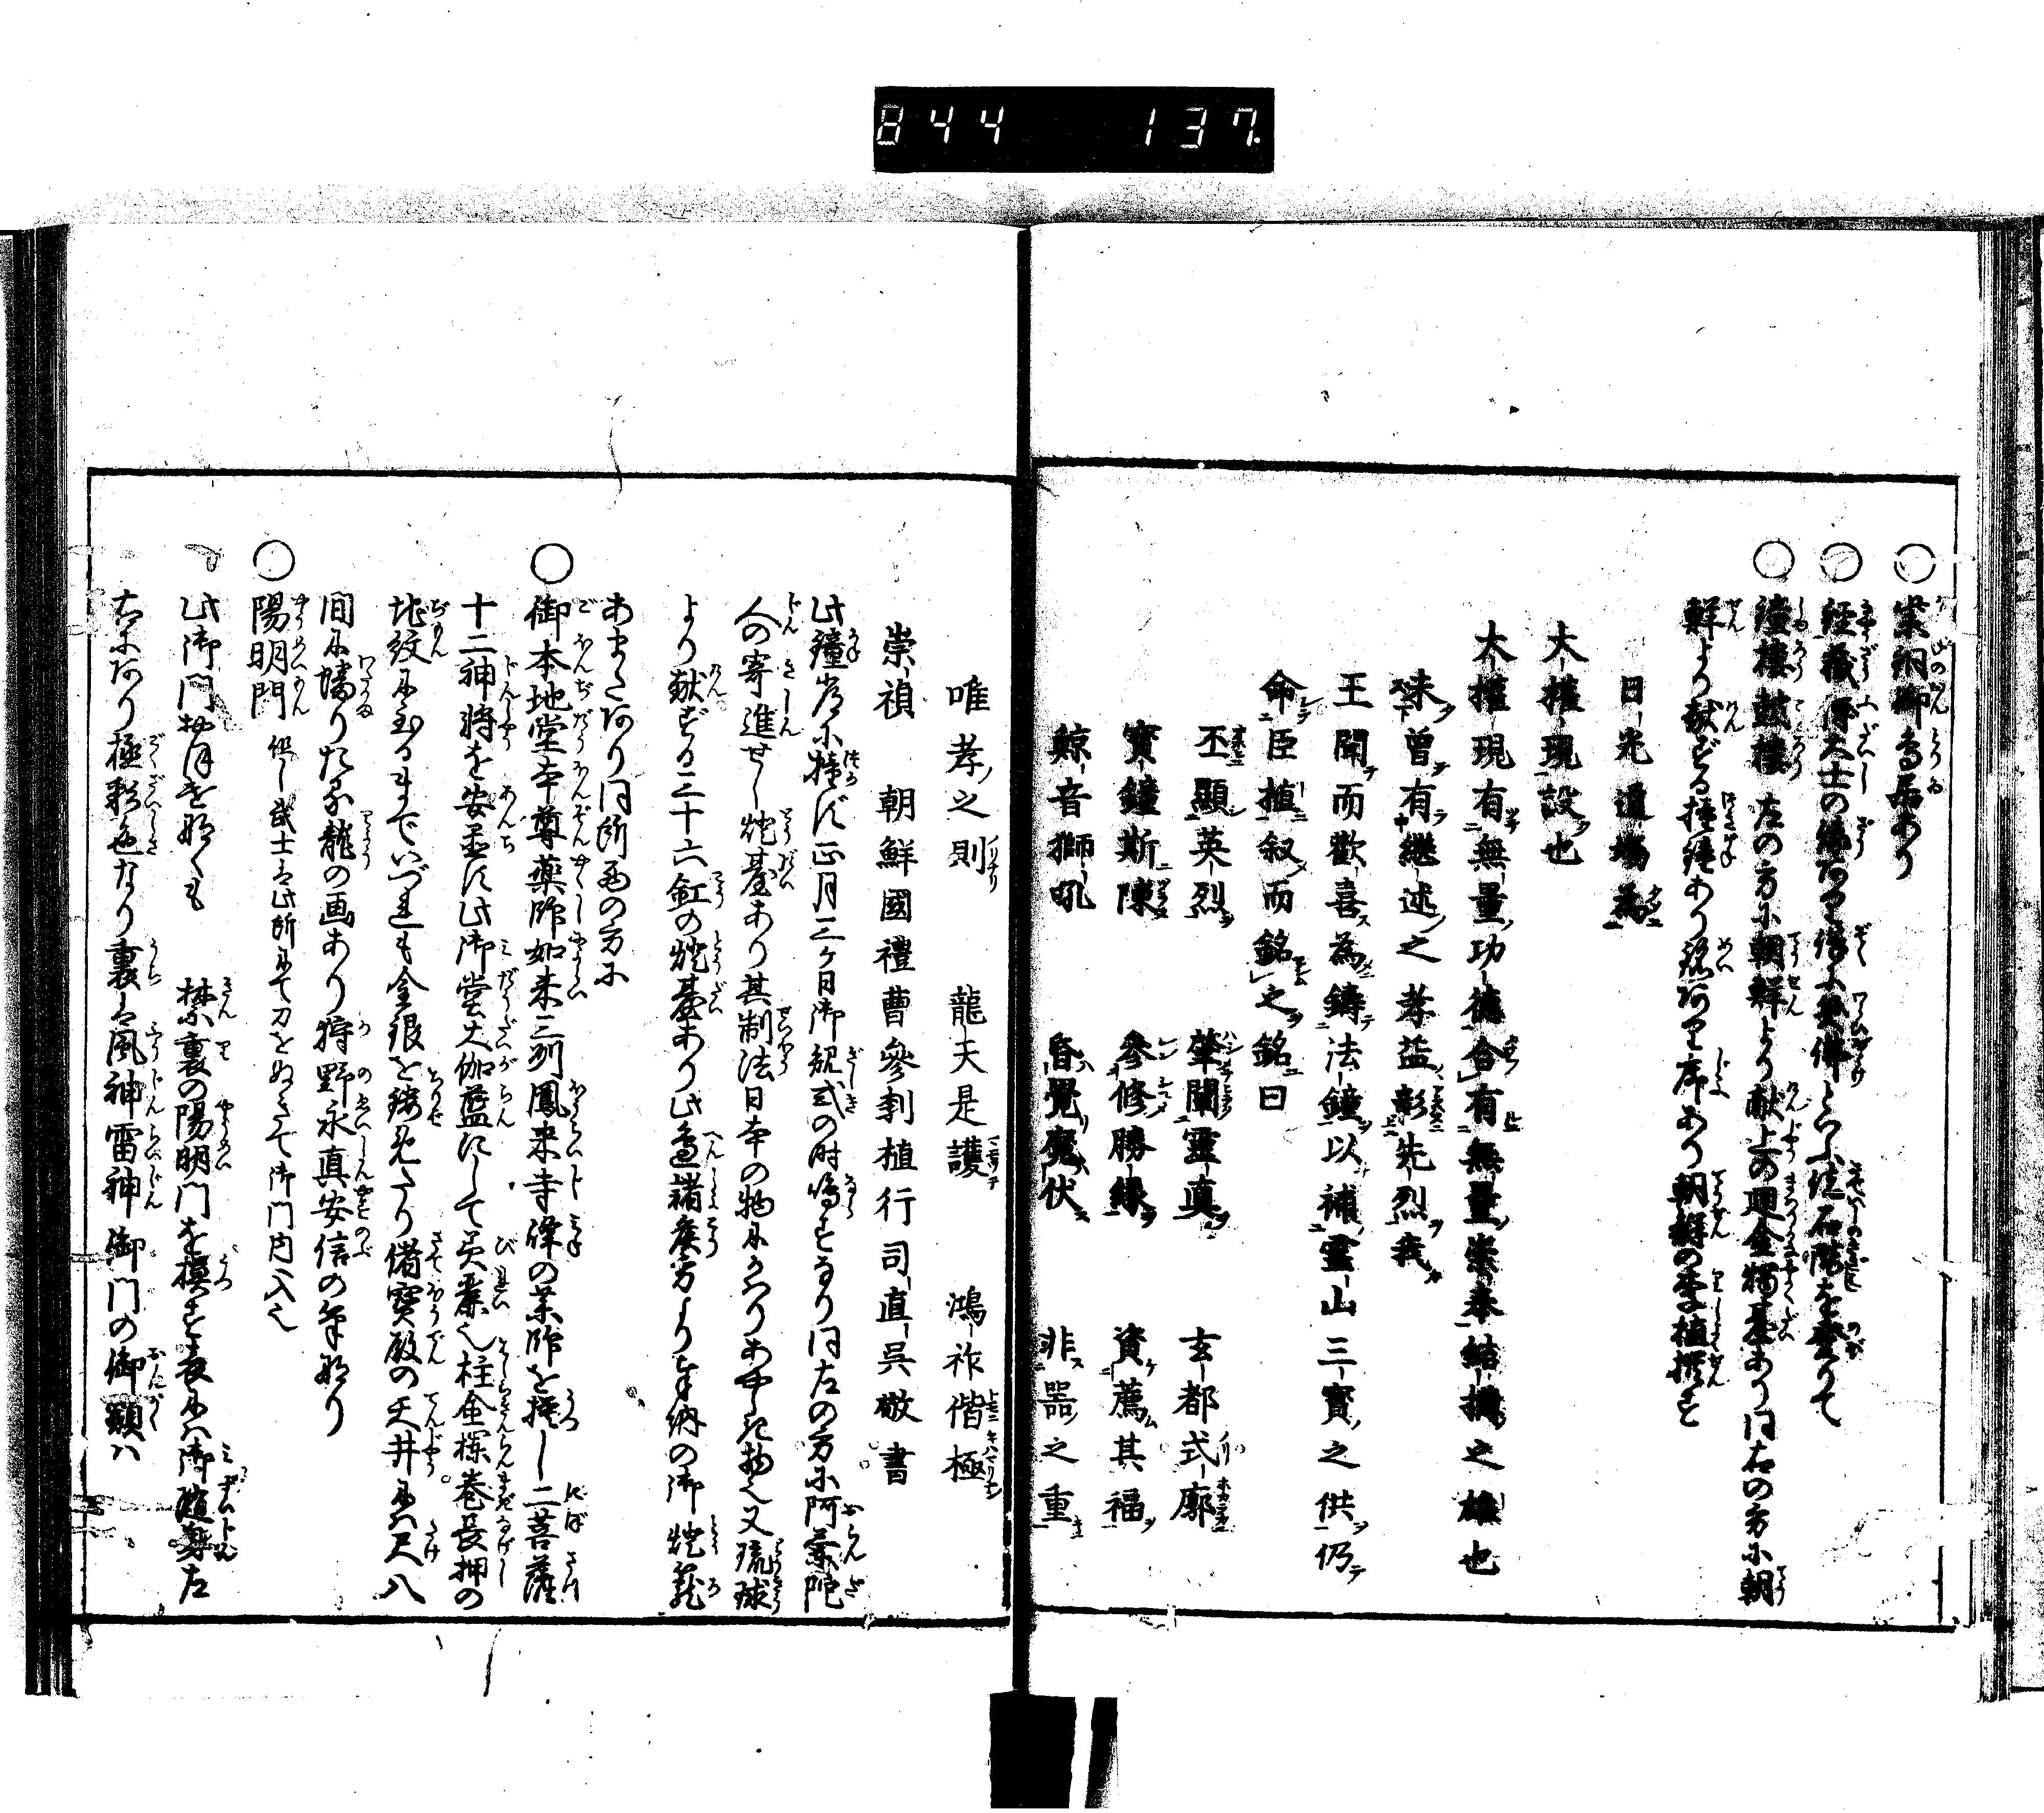 844 137
○ 唐銅御鳥居あり
○ 経蔵 傅大士の像あり俗に笑佛といふ 石階を登りて
○ 鐘樓鼓樓 左の方に朝鮮より献上の廻金燭臺あり同右の方に朝
鮮より献ずる撞鐘あり銘あり序あり朝鮮の李植撰す
日光道場為
大權現設也
大權現有無量功德合有無量崇奉結搆之雄也
未曾有継述之孝益彰先烈我
王聞而歡喜為鑄法鐘以補靈山三寳之供仍
命臣植叙而銘之銘曰
丕顯英烈 肇闡靈真 玄都式廓
寳鐘斯陳 參修勝緣 資薦其福
鯨音獅吼 昏覺魔伏 非器之重
唯孝之則 龍天是護 鴻祚偕極
崇禎 朝鮮國禮曹參判植行司直吳敬書
此鐘常に撞ず正月三ヶ日御規式の時鳴すなり同左の方に阿蘭陀
人の寄進せし燈臺あり其制法日本の物にかはりあやしき物也又琉球
より献ずる三十六缸の燈臺あり此邊諸矦方より奉納の御燈籠
あまたあり同所西の方に
○ 御本地堂本尊薬師如来三刕鳳来寺峰の薬師を摸し二菩薩
十二神将を安置す此御堂大伽藍にして美麗也柱金襴巻長押の
地紋に至るまでいづれも金銀を鏤めたり備寳殿の天井には丈八
間に蟠りたる龍の画あり狩野永真安信の筆なり
○ 陽明門 但し武士は此所にて刀をぬきて御門内へ入也
此御門おほけなくも 禁裏の陽明門を摸す表には御随身左
右にあり極彩色なり裏は風神雷神御門の御額は